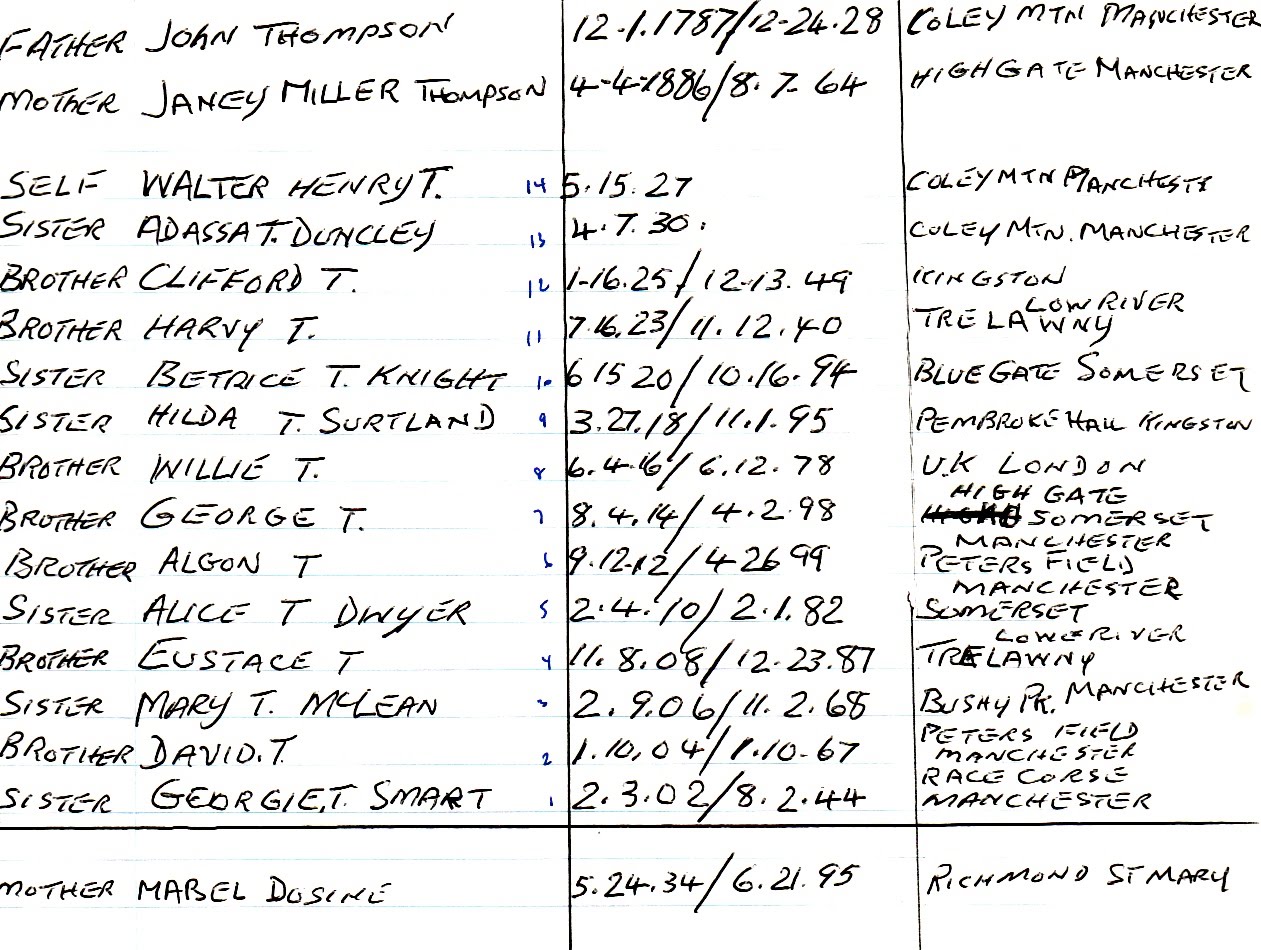 FATHER JOHN THOMPSON 12.1.1787/12-24.28 COLEY MTN MANCHESTER
MOTHER JANEY MILLER THOMPSON 4-4-1886/8.7.64 HIGHGATE MANCHESTER
SELF WALTER HENRY T. 14 5.15.27 COLEY MTN MANCHESTE
SISTER ADASSA T. DUNCLEY 13 4.7.30. COLEY MTN. MANCHESTER
BROTHER CLIFFORD T. 12 1-16.25/12-13.49 KINGSTON
LOW RIVER
BROTHER HARVY T. 11 7.16.23/11.12.40 TRELAWNY
SISTER BETRICE T. KNIGHT 10 6 15 20/10.16.94 BLUEGATE SOMERSET
SISTER HILDA T. SURTLAND 9 3.27.18/11.1.95 PEMBROKE HALL KINGSTON
BROTHER WILLIE T. 8 6.4.16/6.12.78 U.K LONDON
HIGH GATE
BROTHER GEORGE T. 7 8.4.14/4.2.98 SOMERSET
MANCHESTER
BROTHER ALGON T 6 9.12.12/4 26 99 PETERS FIELD
MANCHESTER
SISTER ALICE T DWYER 5 2.4.10/2.1.82 SOMERSET
LOWERIVER
BROTHER EUSTACE T 4 11.8.08/12.23.87 TRELAWNY
SISTER MARY T. MCLEAN 3 2.9.06/11.2.68 BUSHY PK. MANCHESTER
PETERS FIELD
BROTHER DAVID.T. 2 1.10.04/1.10-67 MANCHESTER
RACE CORSE
SISTER GEORGIE.T. SMART 1 2.3.02/8.2.44 MANCHESTER
MOTHER MABEL DOSINE 5.24.34/6.21.95 RICHMOND ST MARY